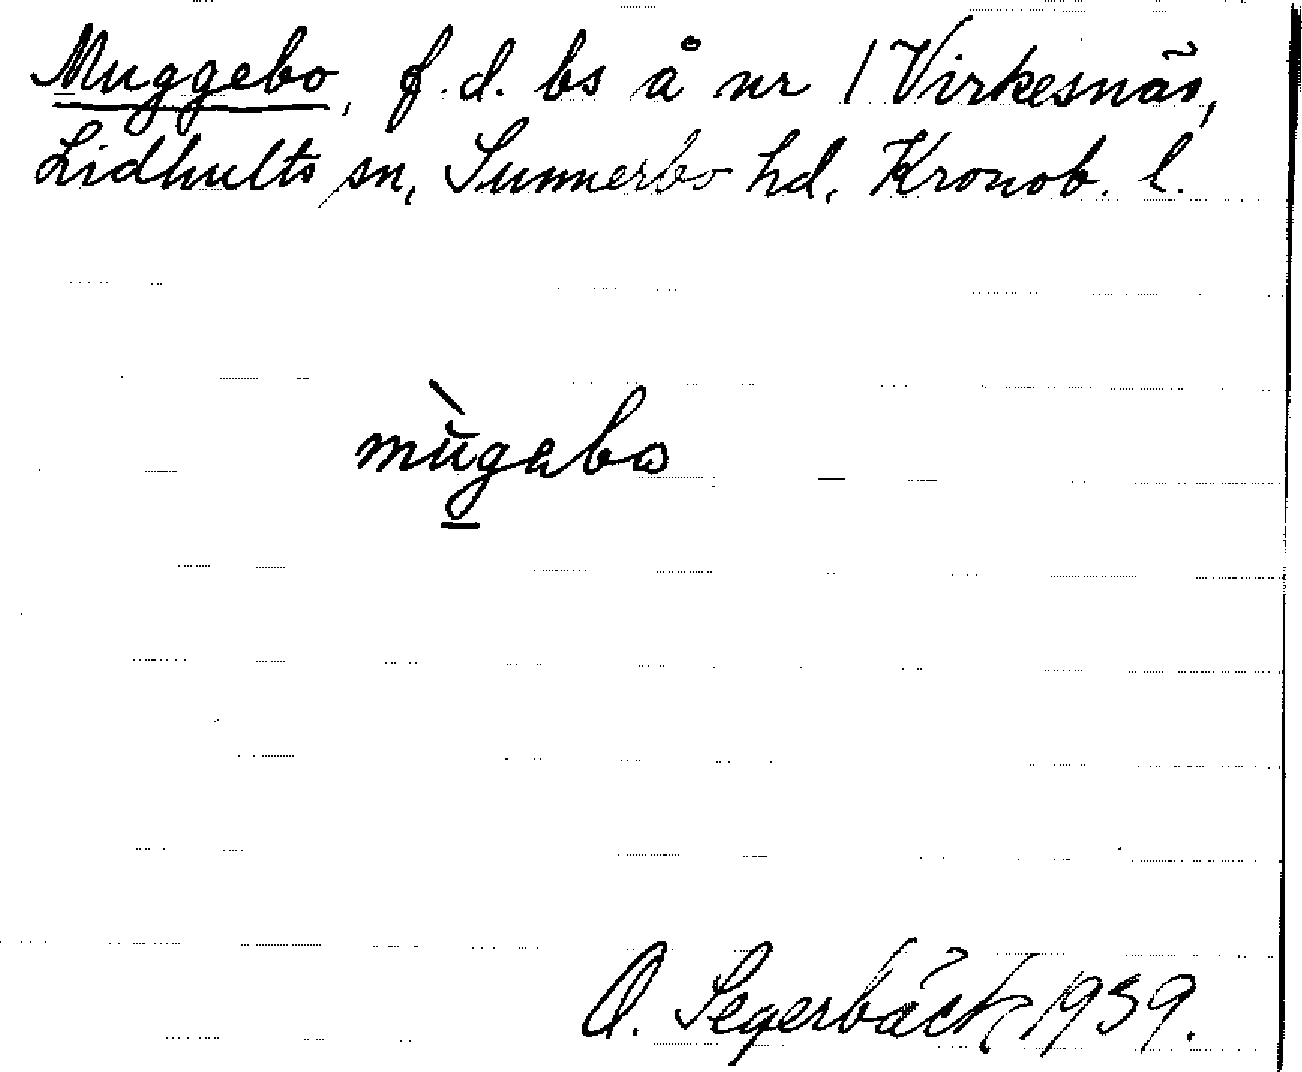 Muggebo, f.d. bs å nr 1 Virkesnäs,
Lidhults sn, Sunnerbo hd, Kronob. l.
mùgabo
O. Segerbäck 1939.